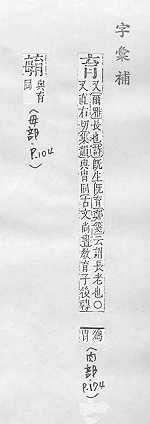 字彙補
育
又爾雅長也詩既生既育鄭箋云謂長老也〇
又直右切集韻與冑同古文尚書教育子後譌
爲
冑
(肉部 P.174)
與育
同
(毋部 P.104)